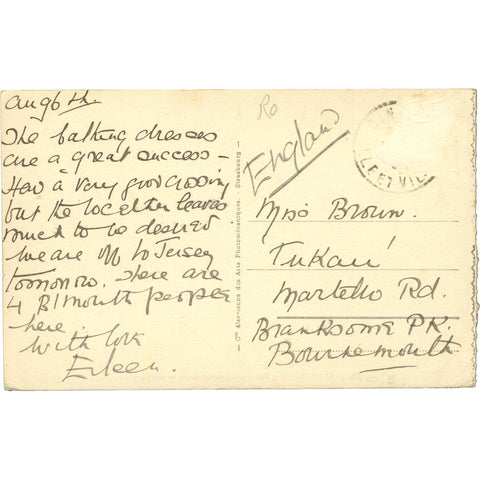 Aug 6th
The bathing dresses
are a great success -
Had a very good crossing
but the weather leaves
much to be desired
We are off to Jersey
tomorrow. There are
4 B'mouth people
here.
With love
Eileen.
Ro
England
Miss Brown.
Martello Rd.
Branksome Pk.
Bournemouth
Cie Alsacienne des Arts Photomécaniques - Strasbourg